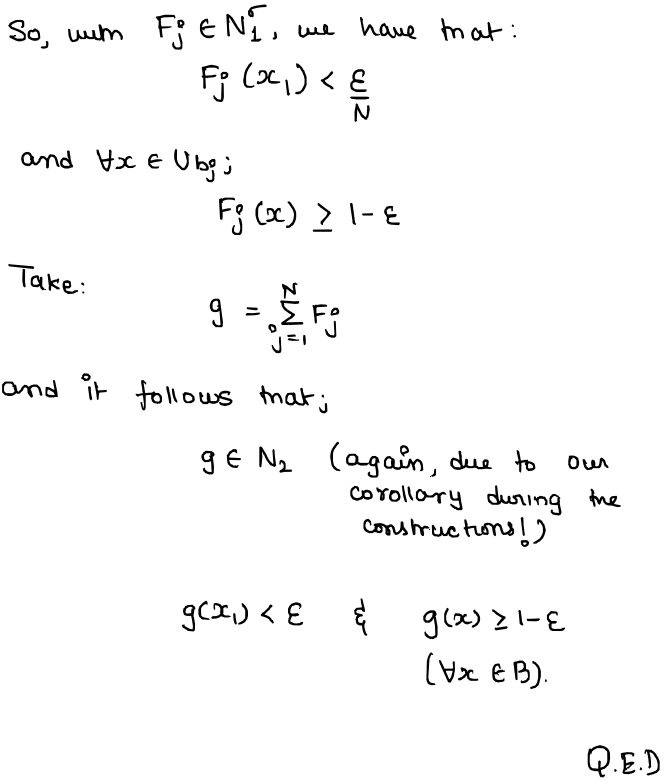 So, with Fj ∈ N₁^σ, we have that:
Fj (x₁) < ε/N
and ∀x ∈ U_bj;
Fj (x) ≥ 1 - ε
Take:
g = Σ_{j=1}^{N} Fj
and it follows that;
g ∈ N₂ (again, due to our
corollary during the
constructions!)
g(x₁) < ε & g(x) ≥ 1-ε
(∀x ∈ B).
Q.E.D